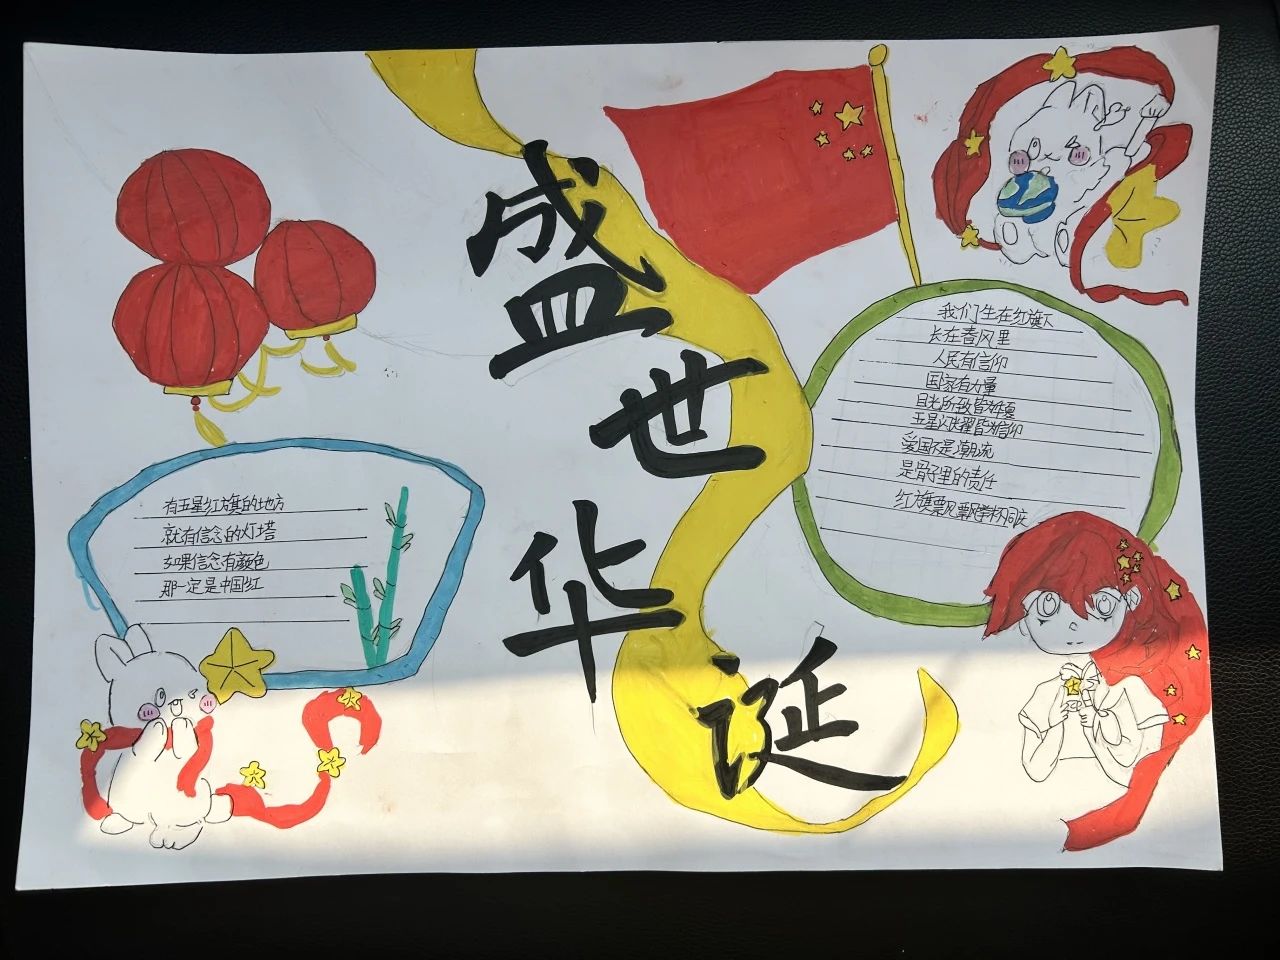 盛世华诞
我们生在红旗下
长在春风里
人民有信仰
国家有力量
目光所致皆为华夏
五星闪耀皆为信仰
爱国不是潮流
是骨子里的责任
红旗飘飘学杯同庆
有五星红旗的地方
就有信念的灯塔
如果信念有颜色
那一定是中国红